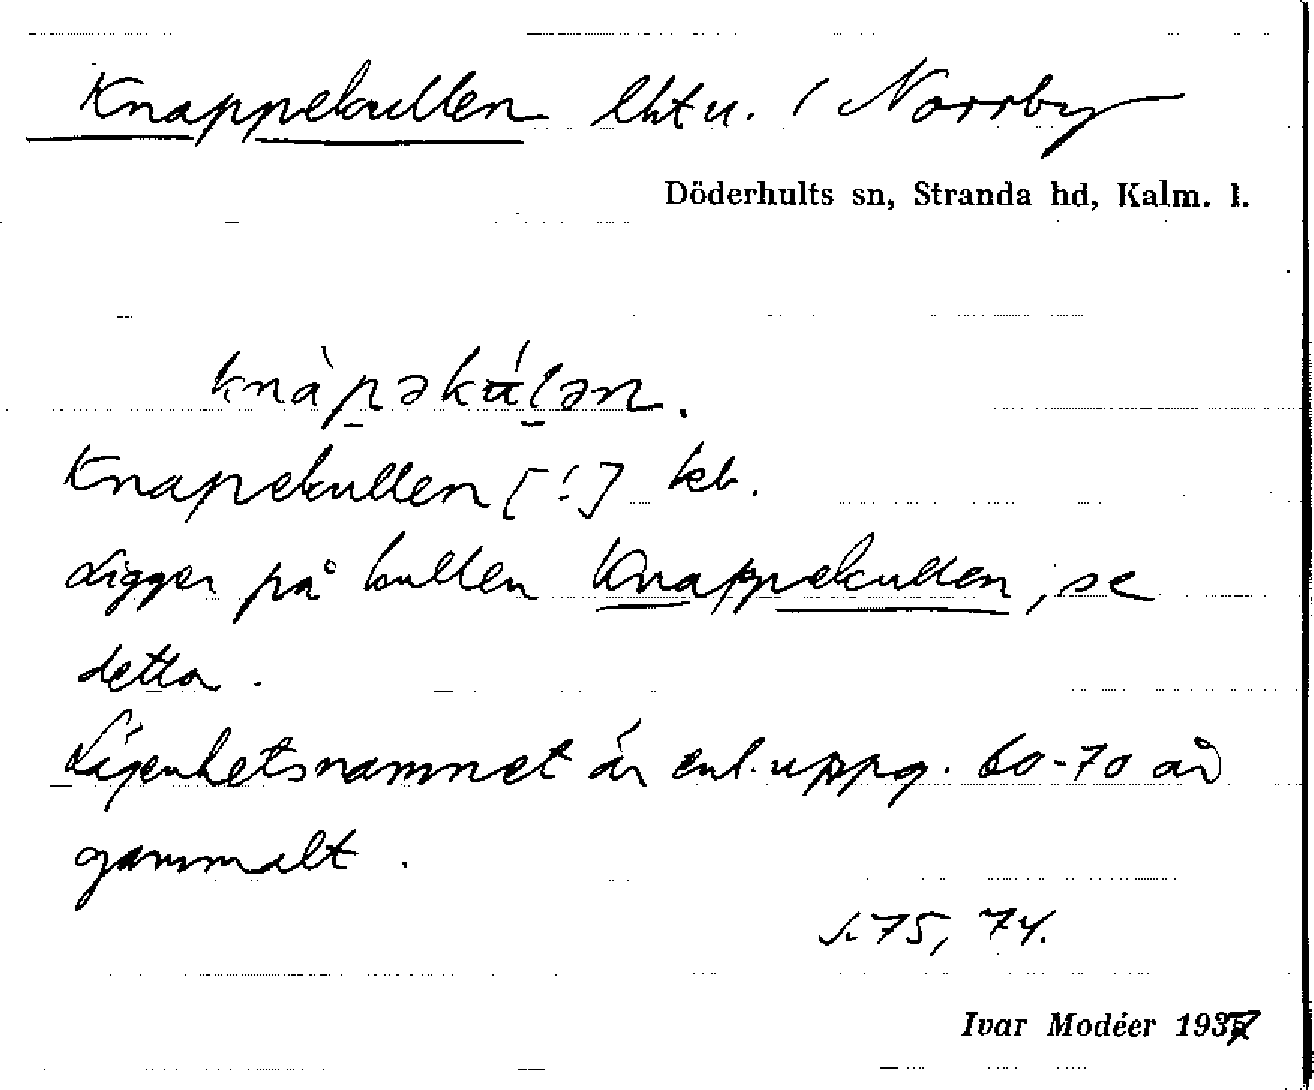 Knappekullen lht u. / Norrby
Döderhults sn, Stranda hd, Kalm. l.
knàpəkʉ́lən.
Knapekullen [!] kb.
Ligger på kullen Knappekullen, se
detta.
Lägenhetsnamnet är enl. uppg. 60-70 år
gammalt.
s. 75, 74.
Ivar Modéer 1937